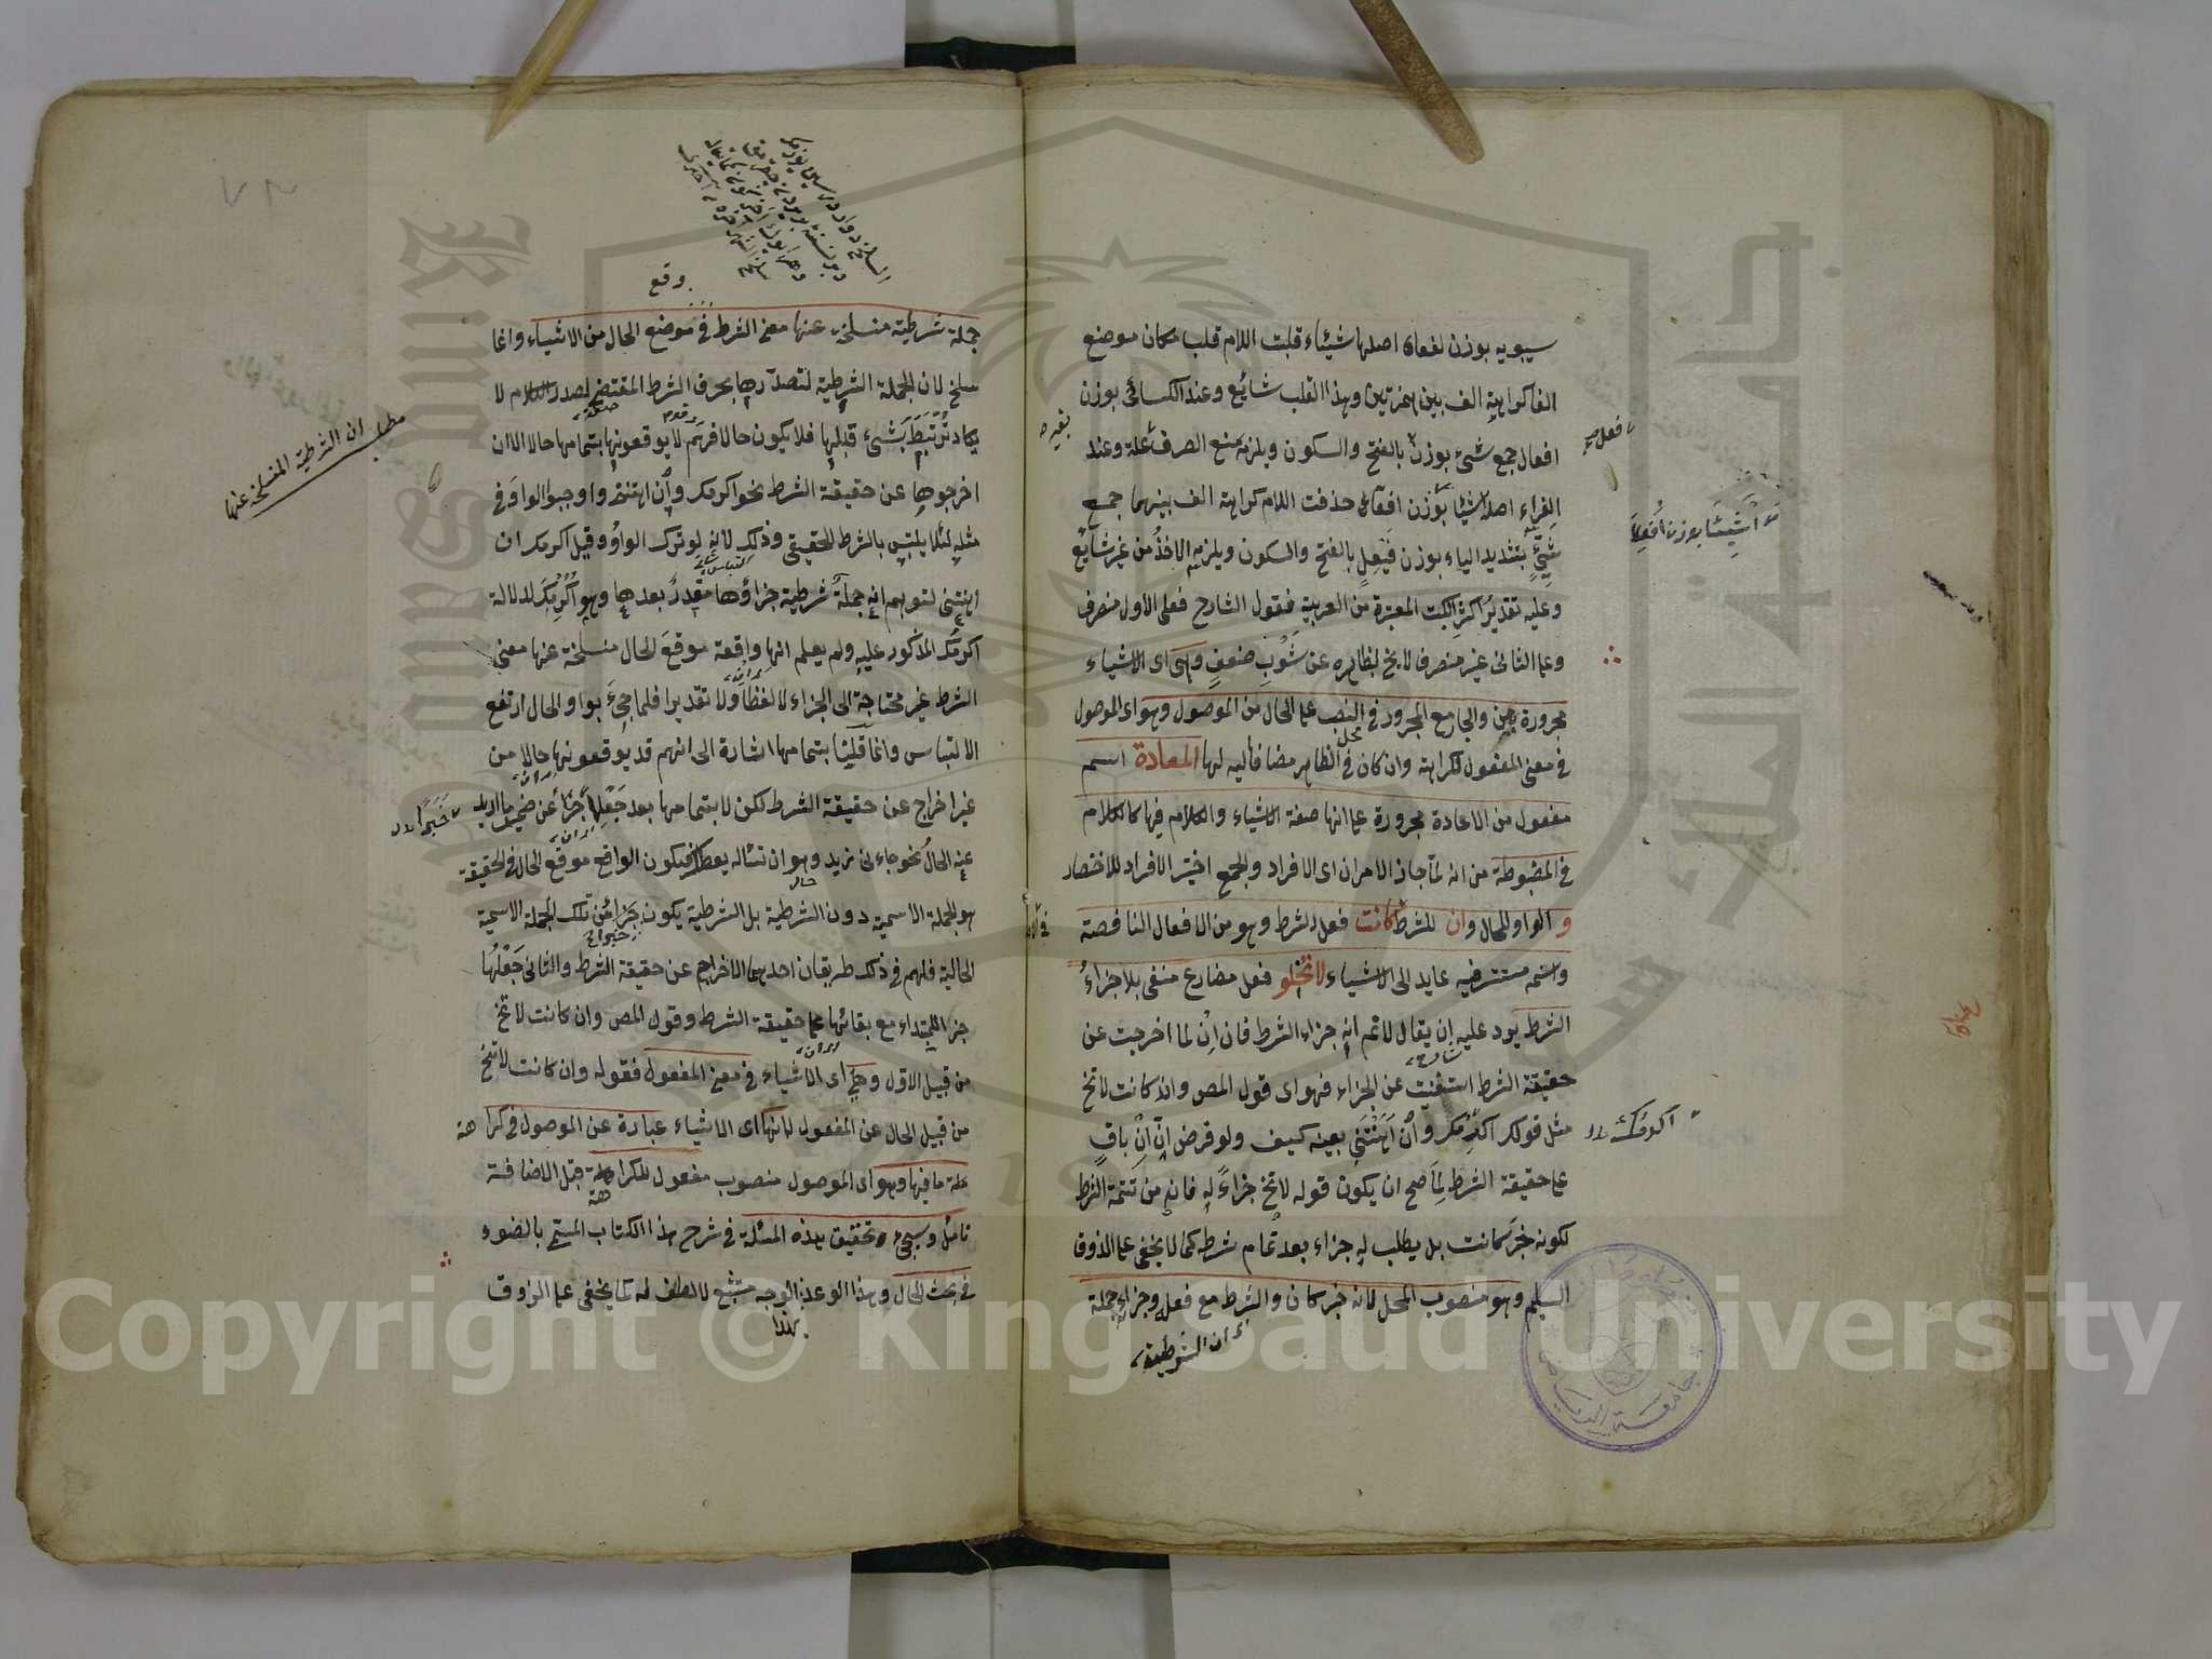 سيبويه بوزن لفعاء اصلها شيئاء قلبت اللام قلب مكان موضع
الفا كراهية الف بين همزتين وهذا القلب شايع وعند الكسائى بوزن
افعال جمع شئ بوزن بالفتح والسكون ويلزمه منع الصرف علة وعند
الفراء اصله بوزن حذفت اللام كراهة الف بينهما جمع
شيّئ بتشديد الياء بوزن فيعل بالفتح والسكون ويلزمه الاخذ من غير شايع
وعليه تقدير اكثر الكتب المعتبرة من العربية فقول الشارح فعلى الاول منصرف
وعلى الثانى غير منصرف لا يخ بظاهره عن شوب ضعف وهى اى الاشياء
مجرورة بمن والجار مع المجرور فى النصب على الحال من الموصول وهو اى الموصول
فى معنى المفعول لكراهة وان كان فى الظاهر مضافا اليه لها المعادة اسم
مفعول من الاعادة مجرورة على انها صفة الاشياء والكلام فيها كالكلام
فى المضبوطة من انه لما جاز الامران اى الافراد والجمع اختير الافراد للاختصار
و الواو للحال وان للشرط كانت فعل الشرط وهو من الافعال الناقصة
واسمه مستتر فيه عايد الى الاشياء لا تخلو فعل مضارع منفى بلا جزاء
الشرط يرد عليه ان يقال لا تم انه جزاء الشرط فان ان لما اخرجت عن
حقيقة الشرط استغنت عن الجزاء فهو اى قول المص وان كانت لا تخ
مثل قولك اكرمك وان اهنتنى بعينه كيف ولو فرض ان ان باق
على حقيقة الشرط لما صح ان يكون قوله لا تخ جزاء له فانه من تتمة الشرط
لكونه خبر كانت بل يطلب له جزاء بعد تمام شرطه كما لا يخفى على الذوق
السليم وهو منصوب المحل لانه خبر كان والشرط مع فعله وجزائه جملة
ان الشرطية
فعل صح
بوزن
اكرمك
وقع
جملة شرطية منسلخة عنها معنى الشرط فى موضع الحال من الاشياء وانما
سلخ لان الجملة الشرطية لتصدرها بحرف الشرط المقتضى لصدر الكلام لا
يكاد ترتبط بشئ قبلها فلا يكون حالا فهم لا يوقعونها بتمامها حالا الا ان
اخرجوها عن حقيقة الشرط نحو اكرمك وان اهنتنى واوجبوا الواو فى
مثله لئلا يلتبس بالشرط الحقيقى وذلك لانه لو ترك الواو وقيل اكرمك ان
اهنتنى لتوهم انه جملة شرطية جزاؤها مقدر بعدها وهو اكرمك لدلالة
اكرمك المذكور عليه ولم يعلم انها واقعة موقع الحال منسلخة عنها معنى
الشرط غير محتاجة الى الجزاء لا لفظا ولا تقديرا فلما جئ بواو الحال ارتفع
الالتباس وانما قلنا بتمامها اشارة الى انهم قد يوقعونها حالا من
غير اخراج عن حقيقة الشرط لكن لا بتمامها بعد جعلها جزأ عن ضمير ما اريد
عنه الحال نحو جاءنى زيد وهو ان تسأله يعطك فيكون الواقع موقع الحال فى الحقيقة
هو الجملة الاسمية دون الشرطية بل الشرطية يكون جزأ من تلك الجملة الاسمية
الحالية فلهم فى ذلك طريقان احدهما الاخراج عن حقيقة الشرط والثانى جعلها
خبر المبتداء مع بقائها على حقيقة الشرط وقول المص وان كانت لا تخ
من قبيل الاول وهى اى الاشياء فى معنى المفعول فقوله وان كانت لا تخ
من قبيل الحال عن المفعول لانها اى الاشياء عبارة عن الموصول فى كراهة
ما فيها وهو اى الموصول منصوب مفعول للكراهة قبل الاضافة
تأمل وسيجئ تحقيق هذه المسئلة فى شرح هذا الكتاب المسمى بالضوء
فى بحث الحال وهذا الوجه لا لطف له كما يخفى على الذوق
بهذا
مطلب ان الشرطية المنسلخة عنها